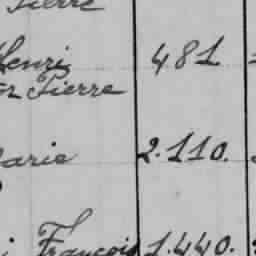 Pierre
Henri 481
Pierre
Marie 2.110.
François 1.440.